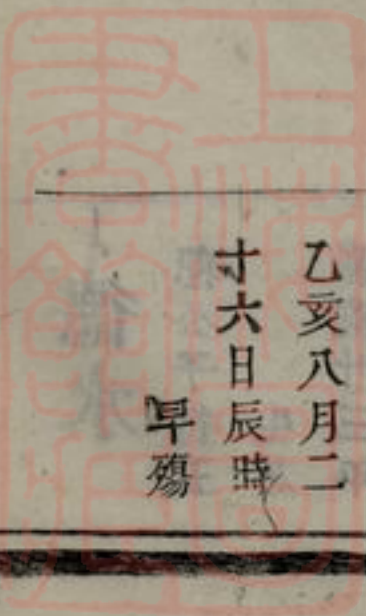 乙亥八月二
寸六日辰時
早殤